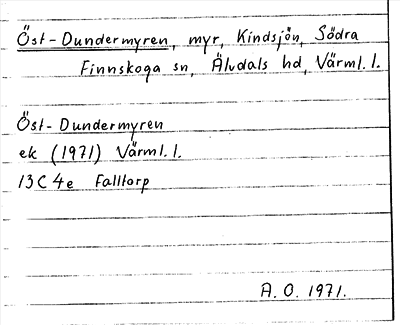 Öst-Dundermyren, myr, Kindsjön, Södra
Finnskoga sn, Älvdals hd, Värml. l.
Öst-Dundermyren
ek (1971) Värml. l.
13C 4e Falltorp
A. O. 1971.